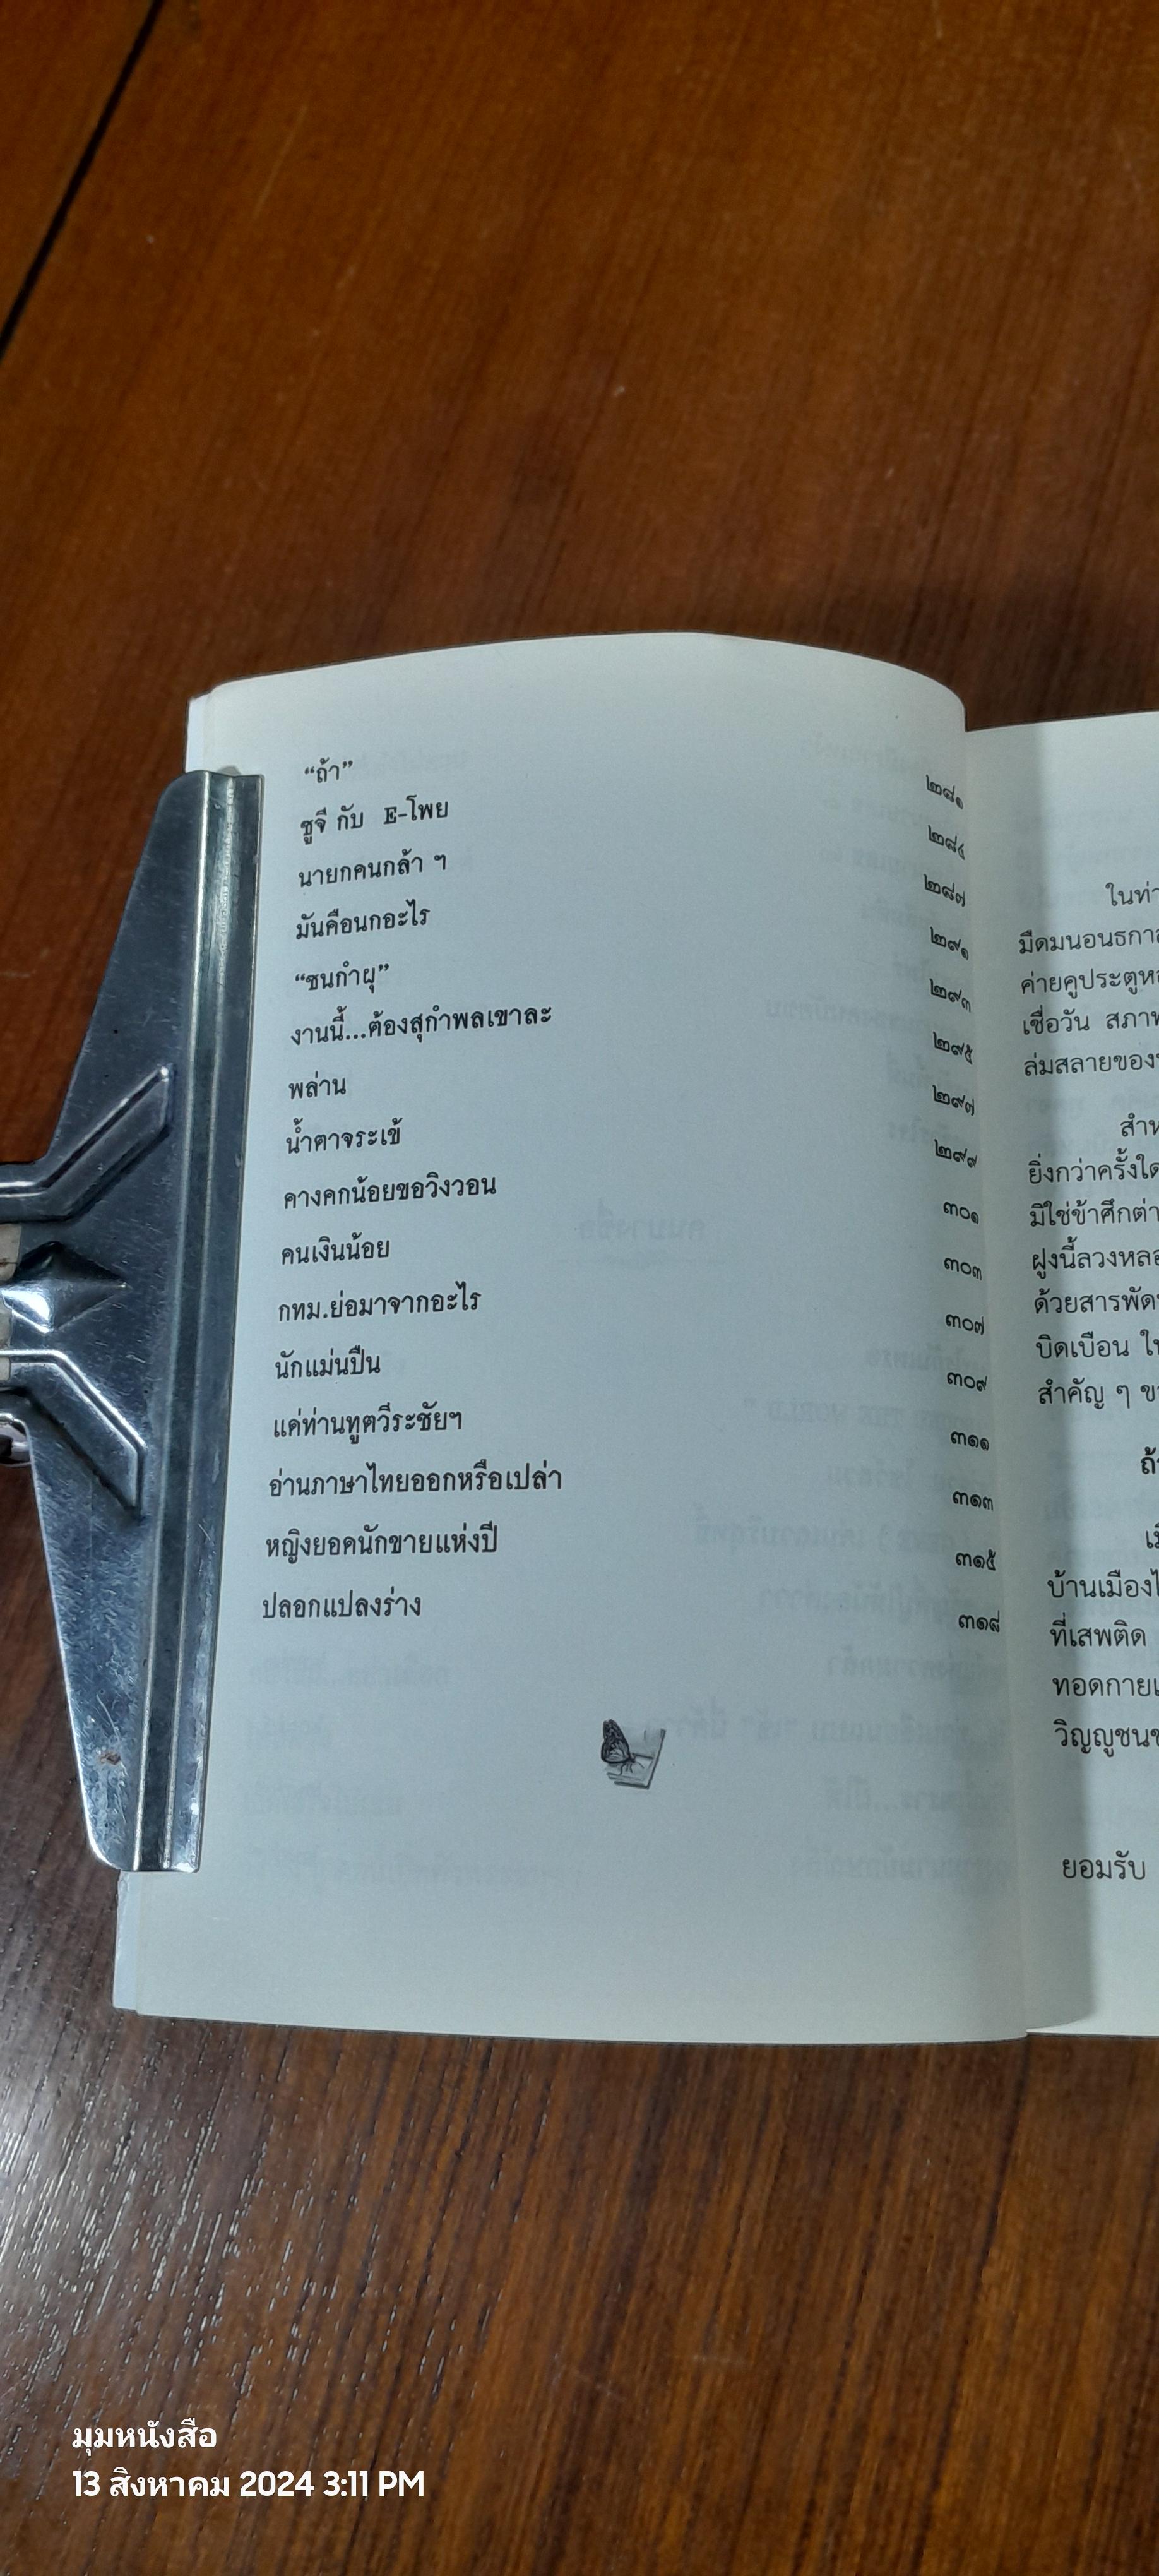 “ถ้า” ๒๘๑
ซูจี กับ E-โพย ๒๘๔
นายกคนกล้า ๆ ๒๘๗
มันคือนกอะไร ๒๙๑
“ซนกำผุ” ๒๙๓
งานนี้...ต้องสุกำพลเขาละ ๒๙๕
พล่าน ๒๙๗
น้ำตาจระเข้ ๒๙๙
คางคกน้อยขอวิงวอน ๓๐๑
คนเงินน้อย ๓๐๓
กทม.ย่อมาจากอะไร ๓๐๗
นักแม่นปืน ๓๐๙
แค่ท่านทูตวีระชัยฯ ๓๑๑
อ่านภาษาไทยออกหรือเปล่า ๓๑๓
หญิงยอดนักขายแห่งปี ๓๑๕
ปลอกแปลงร่าง ๓๑๘
ในท่า
มืดมนอนธกา
ค่ายคูประตูห
เชื่อวัน สภา
ล่มสลายของ
สำห
ยิ่งกว่าครั้งใด
มิใช่ข้าศึกต่า
ฝูงนี้ลวงหล
ด้วยสารพัด
บิดเบือน ใ
สำคัญ ๆ ข
ถ้
เมื
บ้านเมือง
ที่เสพติด
ทอดกาย
วิญญูชน
ยอมรับ
มุมหนังสือ
13 สิงหาคม 2024 3:11 PM